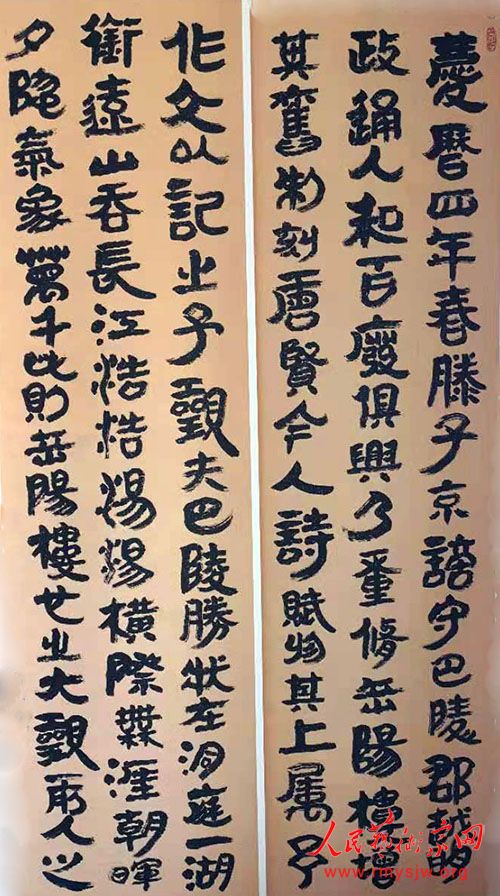 慶曆四年春滕子京謫守巴陵郡越明
政通人和百廢俱興乃重脩岳陽樓增
其舊制刻唐賢今人詩賦於其上屬予
作文以記之予觀夫巴陵勝狀在洞庭一湖
銜遠山吞長江浩浩湯湯橫際無涯朝暉
夕陰氣象萬千此則岳陽樓也之大觀前人之
人民藝術家网
www.rmysjw.org